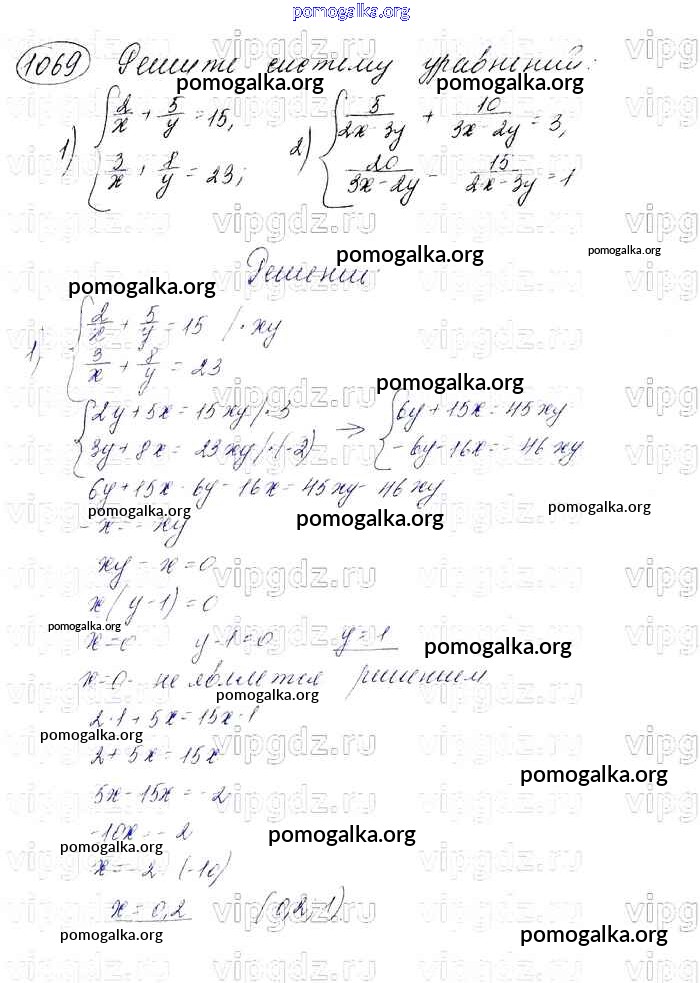 pomogalka.org
1069 Решите систему уравнений:
pomogalka.org pomogalka.org
1) { 2/x + 5/y = 15, 2) { 5/(2x-3y) + 10/(3x-2y) = 3,
3/x + 8/y = 23; 20/(3x-2y) - 15/(2x-3y) = 1
pomogalka.org pomogalka.org
Решение:
pomogalka.org
1) { 2/x + 5/y = 15 /·xy
3/x + 8/y = 23
pomogalka.org
{ 2y + 5x = 15xy /·3 => { 6y + 15x = 45xy
3y + 8x = 23xy /·(-2) -6y - 16x = -46xy
6y + 15x - 6y - 16x = 45xy - 46xy
pomogalka.org pomogalka.org pomogalka.org
-x = -xy
xy - x = 0
x(y-1) = 0
pomogalka.org
x=0 y-1=0 y=1
pomogalka.org
x=0 - не является решением
pomogalka.org
2·1 + 5x = 15x·1
pomogalka.org
2 + 5x = 15x
pomogalka.org
5x - 15x = -2
-10x = -2
pomogalka.org pomogalka.org
x = -2 : (-10)
x = 0,2 (0,2; 1)
pomogalka.org pomogalka.org
vipgdz.ru